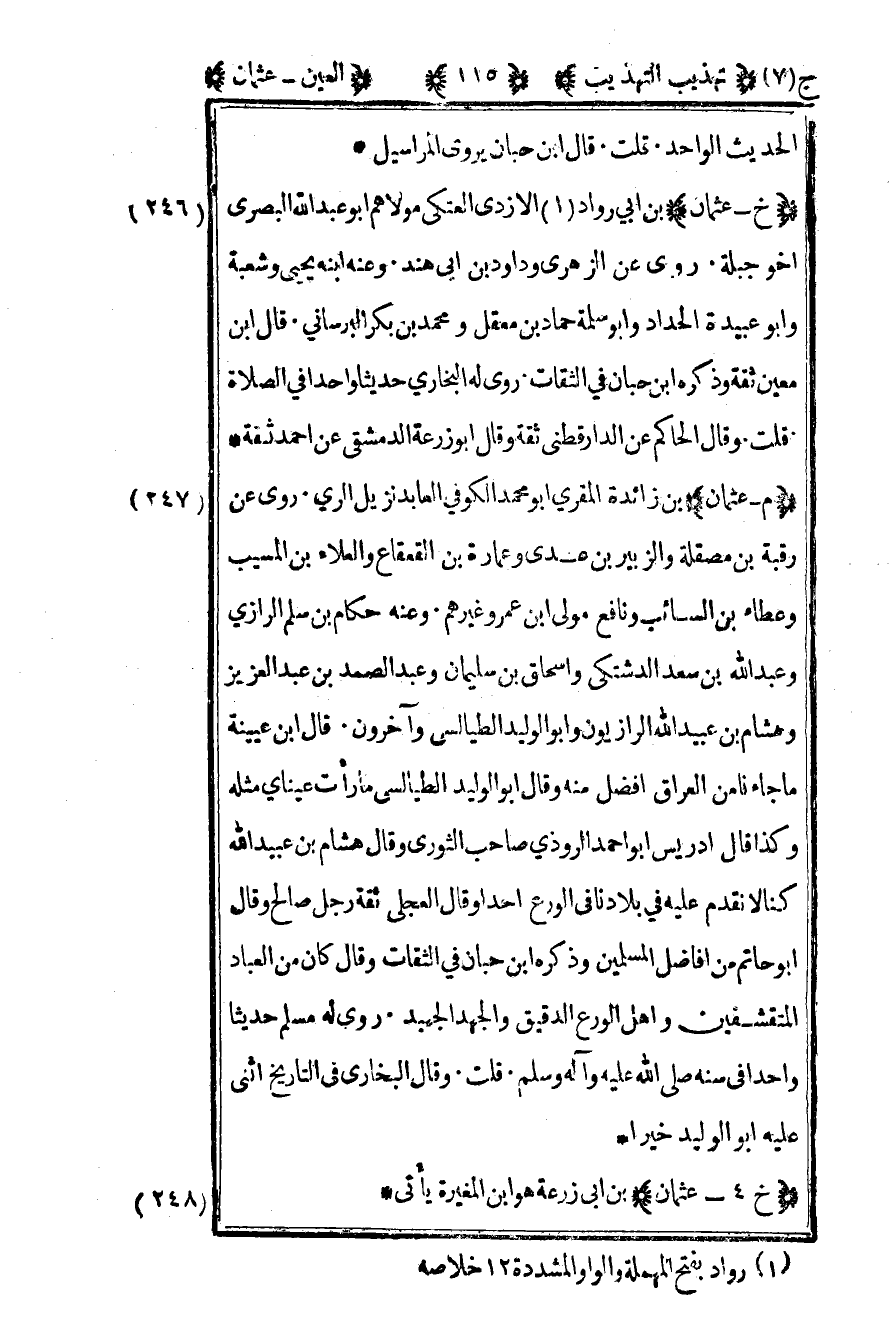 ج(٧) ﴿ تهذيب التهذيب ﴾ ﴿ ١١٥ ﴾ ﴿ العين ــ عثمان ﴾
الحديث الواحد ٠ قلت ٠ قال ابن حبان يروى المراسيل *
﴿ خ ــ عثمان ﴾ بن ابي رواد (١) الازدى العتكى مولاهم ابو عبدالله البصرى (٢٤٦)
اخو جبلة ٠ روى عن الزهرى وداود بن ابى هند ٠ وعنه ابنه يحيى وشعبة
وابو عبيدة الحداد وابو سلمة حماد بن معقل و محمد بن بكر البرساني ٠ قال ابن
معين ثقة وذكره ابن حبان في الثقات ٠ روى له البخاري حديثا واحدا في الصلاة
٠ قلت ٠ وقال الحاكم عن الدارقطنى ثقة وقال ابو زرعة الدمشقى عن احمد ثقة *
﴿ م ــ عثمان ﴾ بن زائدة المقري ابو محمد الكوفي العابد نزيل الري ٠ روى عن (٢٤٧)
رقبة بن مصقلة والزبير بن عدى وعمارة بن القعقاع والعلاء بن المسيب
وعطاء بن السائب ونافع مولى ابن عمر وغيرهم ٠ وعنه حكام بن سلم الرازي
وعبدالله بن سعد الدشتكى واسحاق بن سليمان وعبد الصمد بن عبد العزيز
وهشام بن عبيدالله الرازيون وابو الوليد الطيالسى وآخرون ٠ قال ابن عيينة
ماجاءنا من العراق افضل منه وقال ابو الوليد الطيالسى ما رأت عيناي مثله
وكذا قال ادريس ابو احمد الروذي صاحب الثورى وقال هشام بن عبيدالله
كنا لا نقدم عليه في بلادنا فى الورع احدا وقال العجلى ثقة رجل صالح وقال
ابو حاتم من افاضل المسلمين وذكره ابن حبان في الثقات وقال كان من العباد
المتقشفين و اهل الورع الدقيق والجهد الجهيد ٠ روى له مسلم حديثا
واحدا فى سنه صلى الله عليه وآله وسلم ٠ قلت ٠ وقال البخارى فى التاريخ اثنى
عليه ابو الوليد خيرا *
﴿ خ ٤ ــ عثمان ﴾ بن ابى زرعة هو ابن المغيرة يأتى * (٢٤٨)
(١) رواد بفتح المهملة والواو المشددة ١٢ خلاصه